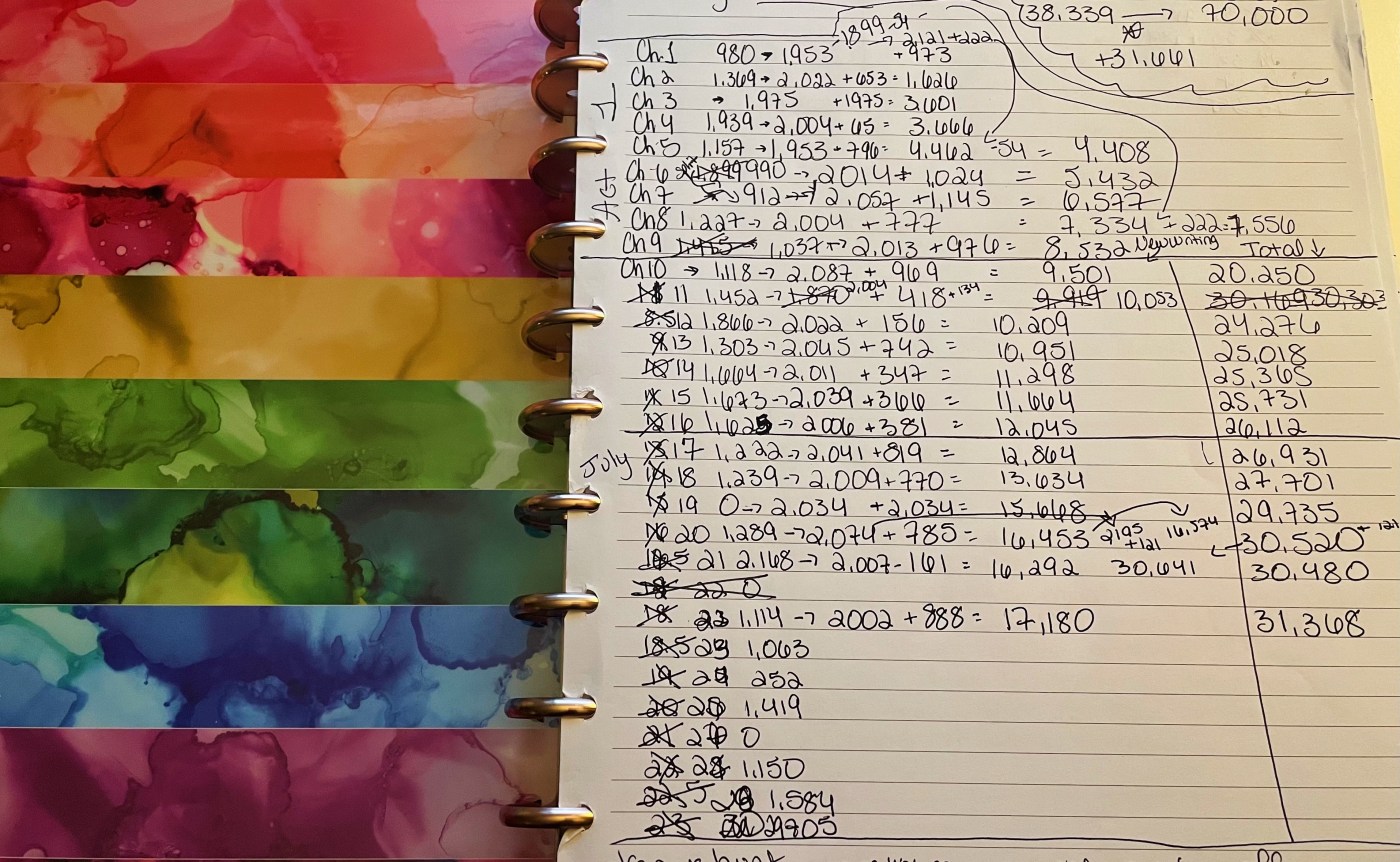 (38,339 → 70,000
+31,661
1899-54
→ 2,121 +222
Ch.1 980 → 1,953 +973
Ch 2 1.369 → 2,022 +653 = 1,626
Ch 3 → 1,975 +1975 = 3,601
Ch 4 1,939 → 2,004 + 65 = 3,666
Ch 5 1,157 → 1,953 + 796 = 4,462 -54 = 4,408
Ch 6 990 → 2014 + 1,024 = 5,432
Ch 7 912 → 2,057 +1,145 = 6,577
Ch8 1,227 → 2,004 + 777 = 7,334 + 222 = 7,556
Ch 9 1,037 → 2,013 + 976 = 8,532 New writing Total ↓
Ch10 → 1,118 → 2,087 + 969 = 9,501 20,250
11 1,452 → 1,870 2,004 + 418 +134 = 9,919 10,053 30,169 30,303
8.5 12 1,866 → 2,022 + 156 = 10,209 24,276
9 13 1,303 → 2,045 + 742 = 10,951 25,018
10 14 1,664 → 2,011 + 347 = 11,298 25,365
15 1,673 → 2,039 +366 = 11,664 25,731
16 1,625 → 2006 +381 = 12,045 26,112
July 17 1,222 → 2,041 +819 = 12,864 26,931
18 1,239 → 2,009 +770 = 13,634 27,701
19 0 → 2,034 +2,034 = 15,668 29,735
16 20 1,289 → 2,074 + 785 = 16,453 2195 +121 16,574 30,520 + 121
21 2,168 → 2,007 - 161 = 16,292 30,641 30,480
18 22 0
18 23 1,114 → 2002 + 888 = 17,180 31,368
18.5 1,063
19 252
20 1,419
21 0
22 28 1,150
22.5 1,584
23